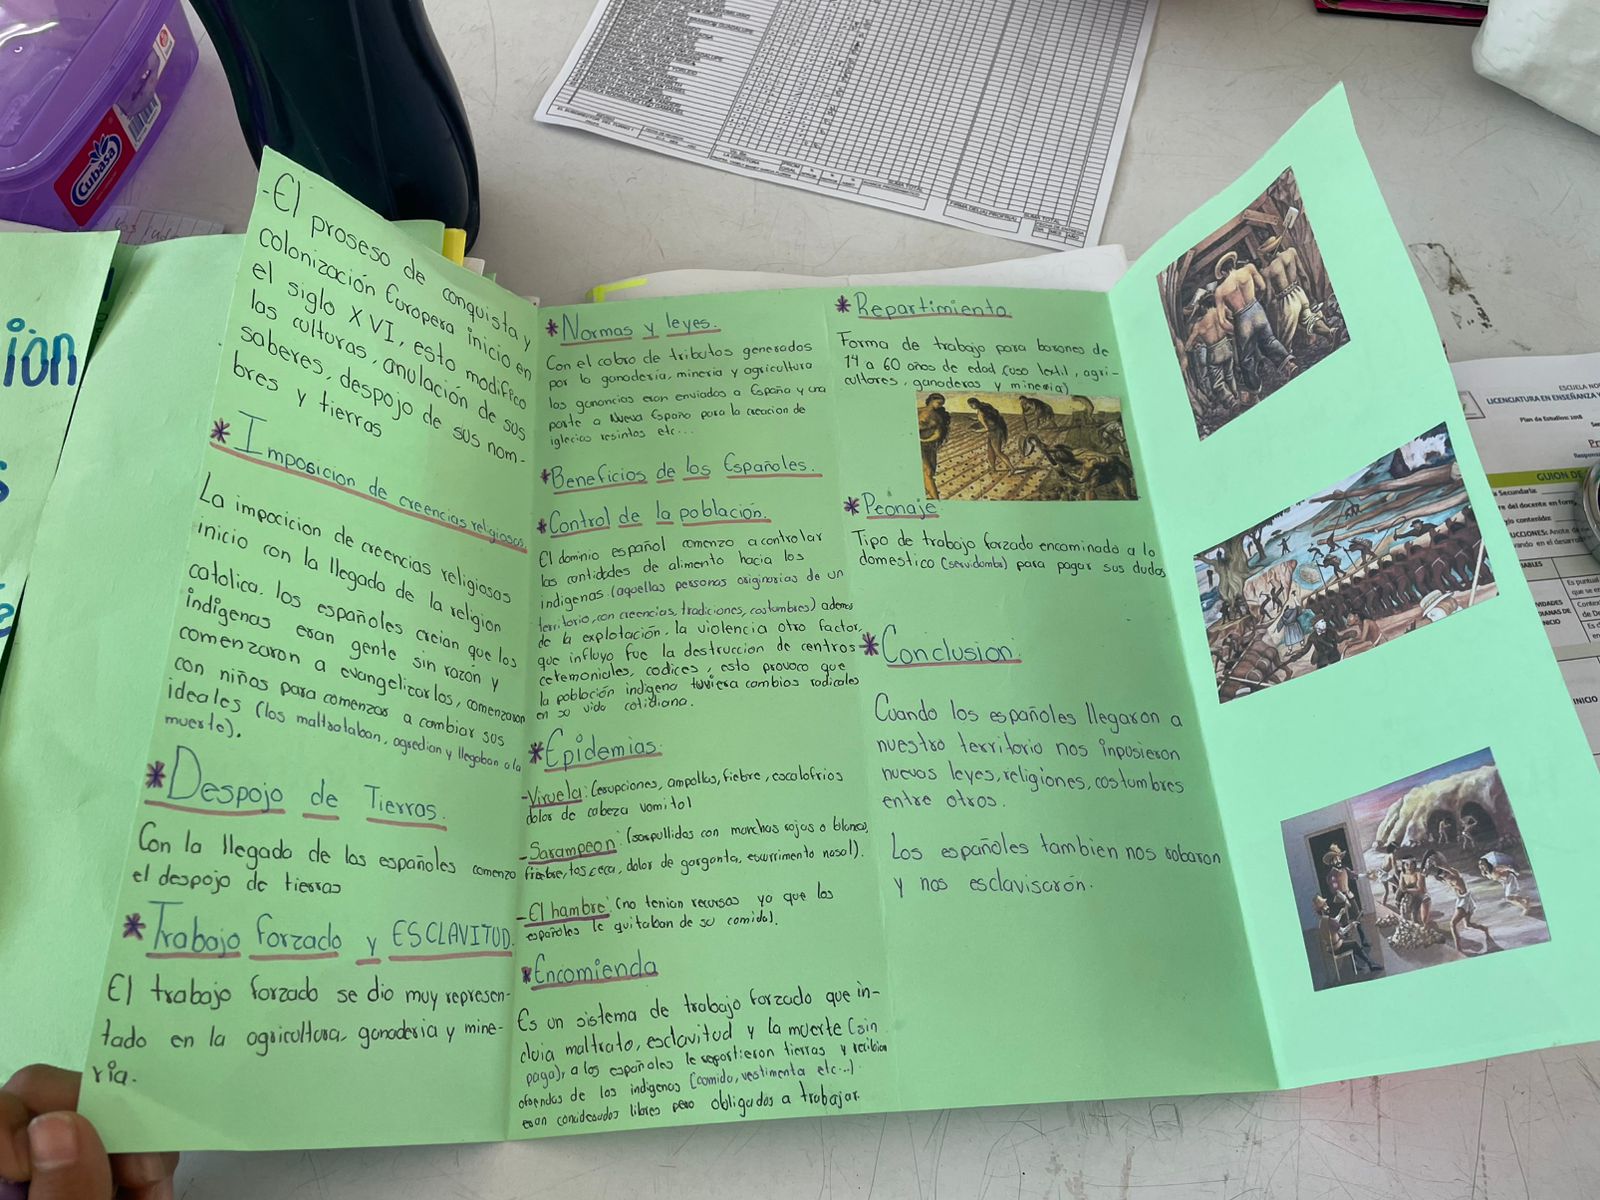 -El proseso de conquista y
colonización Europera inicio en
el siglo XVI, esto modifico
las culturas, anulación de sus
saberes, despojo de sus nom-
bres y tierras
* Imposicion de creencias religiosas.
La impocicion de creencias religiosas
inicio con la llegada de la religion
catolica. los españoles creian que los
indigenas eran gente sin razón y
comenzaron a evangelizarlos, comenzaron
con niños para comenzar a cambiar sus
ideales (los maltrataban, agredian y llegaban a la
muerte).
* Despojo de Tierras.
Con la llegada de los españoles comenzo
el despojo de tierras
* Trabajo forzado y ESCLAVITUD.
El trabajo forzado se dio muy represen-
tado en la agricultura, ganaderia y mine-
ria.
* Normas y leyes.
Con el cobro de tributos generados
por la ganaderia, mineria y agricultura
las ganancias eran enviados a España y una
parte a Nueva España para la creacion de
iglecias resintos etc...
* Beneficios de los Españoles.
* Control de la población.
El dominio español comenzo a controlar
las contidades de alimento hacia los
indigenas (aquellas personas originarias de un
territorio, con creencias, tradiciones, costumbres) ademas
de la explotación, la violencia otro factor
que influyo fue la destruccion de centros
ceremoniales, codices, esto provoco que
la población indigena tuviera cambios radicales
en su vida cotidiana.
* Epidemias:
-Viruela: (erupciones, ampollas, fiebre, escalofrios
dolor de cabeza vomito)
-Sarampeon: (sarpullidos con manchas rojas o blancas,
fiebre, tos ceca, dolor de garganta, escurrimento nasal).
-El hambre: (no tenian recursos ya que los
españoles le quitaban de su comida).
* Encomienda
Es un sistema de trabajo forzado que in-
cluia maltrato, esclavitud y la muerte (sin
paga), a los españoles le repartieron tierras y recibian
ofrendas de los indigenas (comida, vestimenta etc...)
eran considerados libres pero obligados a trabajar.
* Repartimiento
Forma de trabajo para barones de
14 a 60 años de edad (uso textil, agri-
cultores, ganaderas y mineria)
* Peonaje
Tipo de trabajo forzado encaminado a lo
domestico (servidumbre) para pagar sus dudas
* Conclusion.
Cuando los españoles llegaron a
nuestro territorio nos inpusieron
nuevos leyes, religiones, costumbres
entre otros.
Los españoles tambien nos robaron
y nos esclavisarón.
Cubasa
ión
SUMA TOTAL
LA DIRECTORA
ESCUELA NO
LICENCIATURA EN ENSEÑANZA Y
Plan de Estudios: 2018
GUION DE
Secundaria:
INICIO
Es puntual
que se